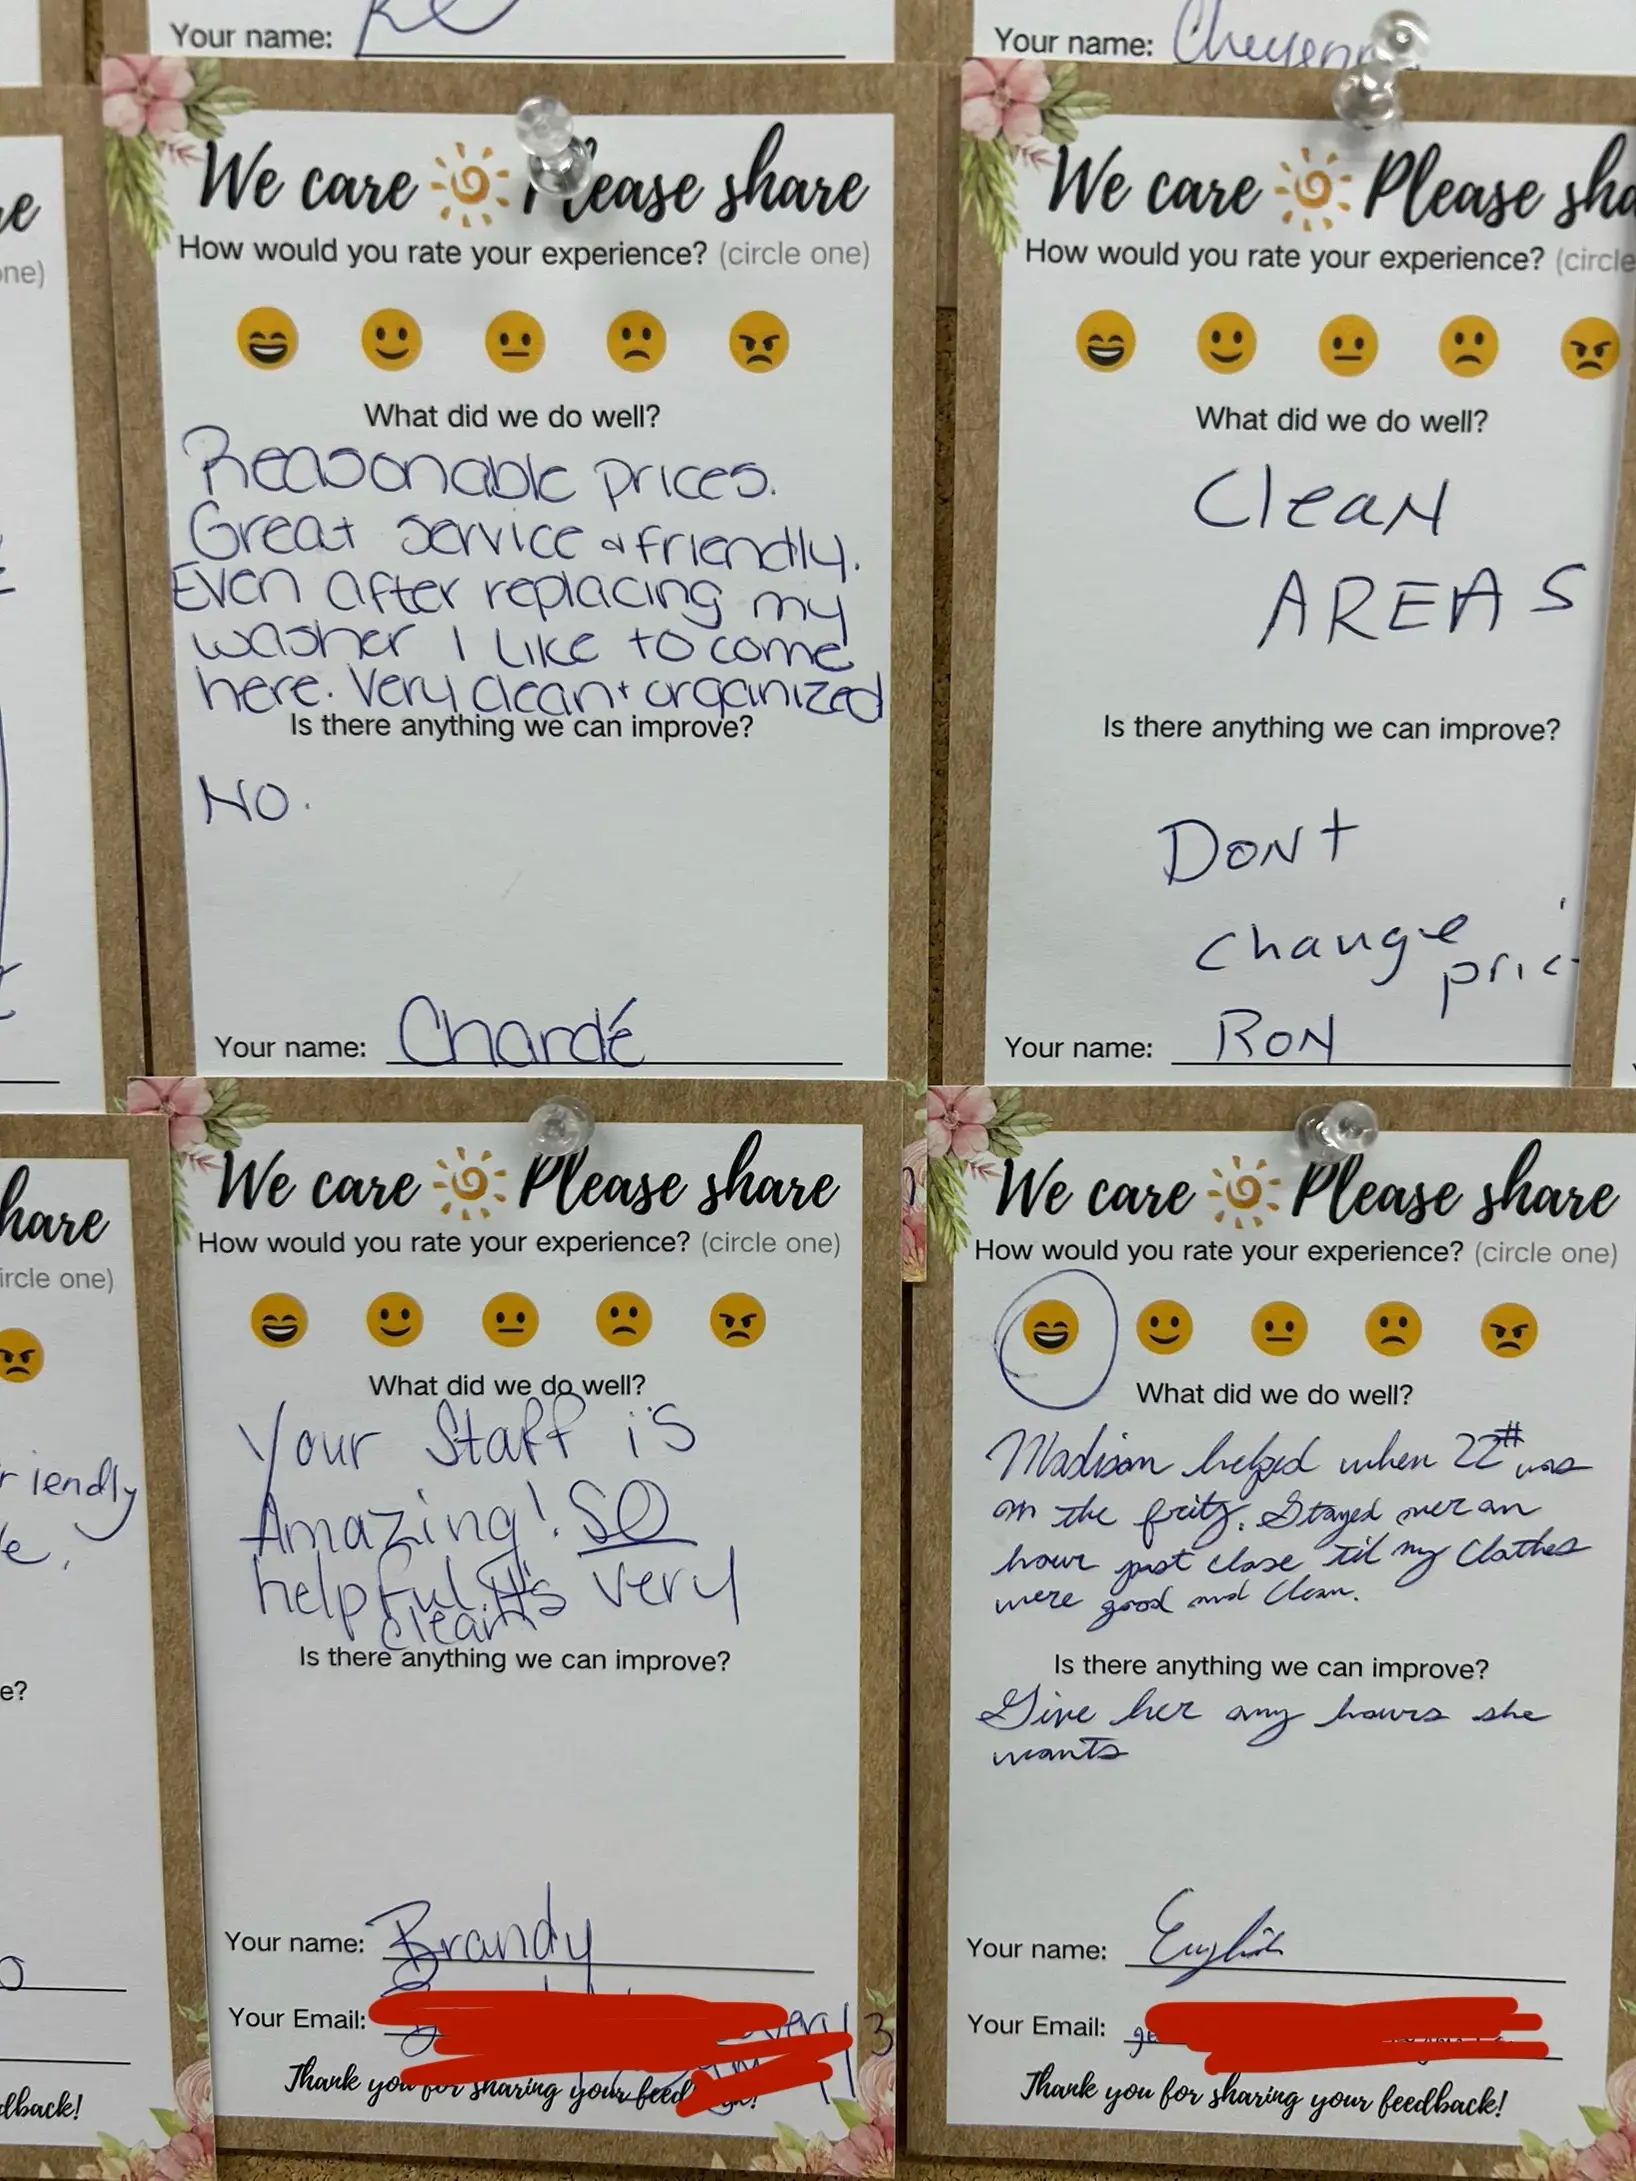 Your name:
Your name: Cheyenn
We care Please share
How would you rate your experience? (circle one)
What did we do well?
Reasonable prices.
Great service & friendly.
Even after replacing my
washer I like to come
here. Very clean + organized
Is there anything we can improve?
No.
Your name: Chardé
We care Please sha
How would you rate your experience? (circle
What did we do well?
Clean
AREAS
Is there anything we can improve?
Dont
change
pric
Your name: RON
re
one)
We care Please share
How would you rate your experience? (circle one)
What did we do well?
Your Staff is
Amazing! SO
helpful. It's very
clean
Is there anything we can improve?
Your name: Brandy
Your Email:
3
Thank you for sharing your feed
We care Please share
How would you rate your experience? (circle one)
What did we do well?
Madison helped when 22# was
on the fritz. Stayed over an
hour past close til my clothes
were good and clean.
Is there anything we can improve?
Give her any hours she
wants
Your name: English
Your Email: ge
Thank you for sharing your feedback!
hare
ircle one)
riendly
e.
e?
dback!